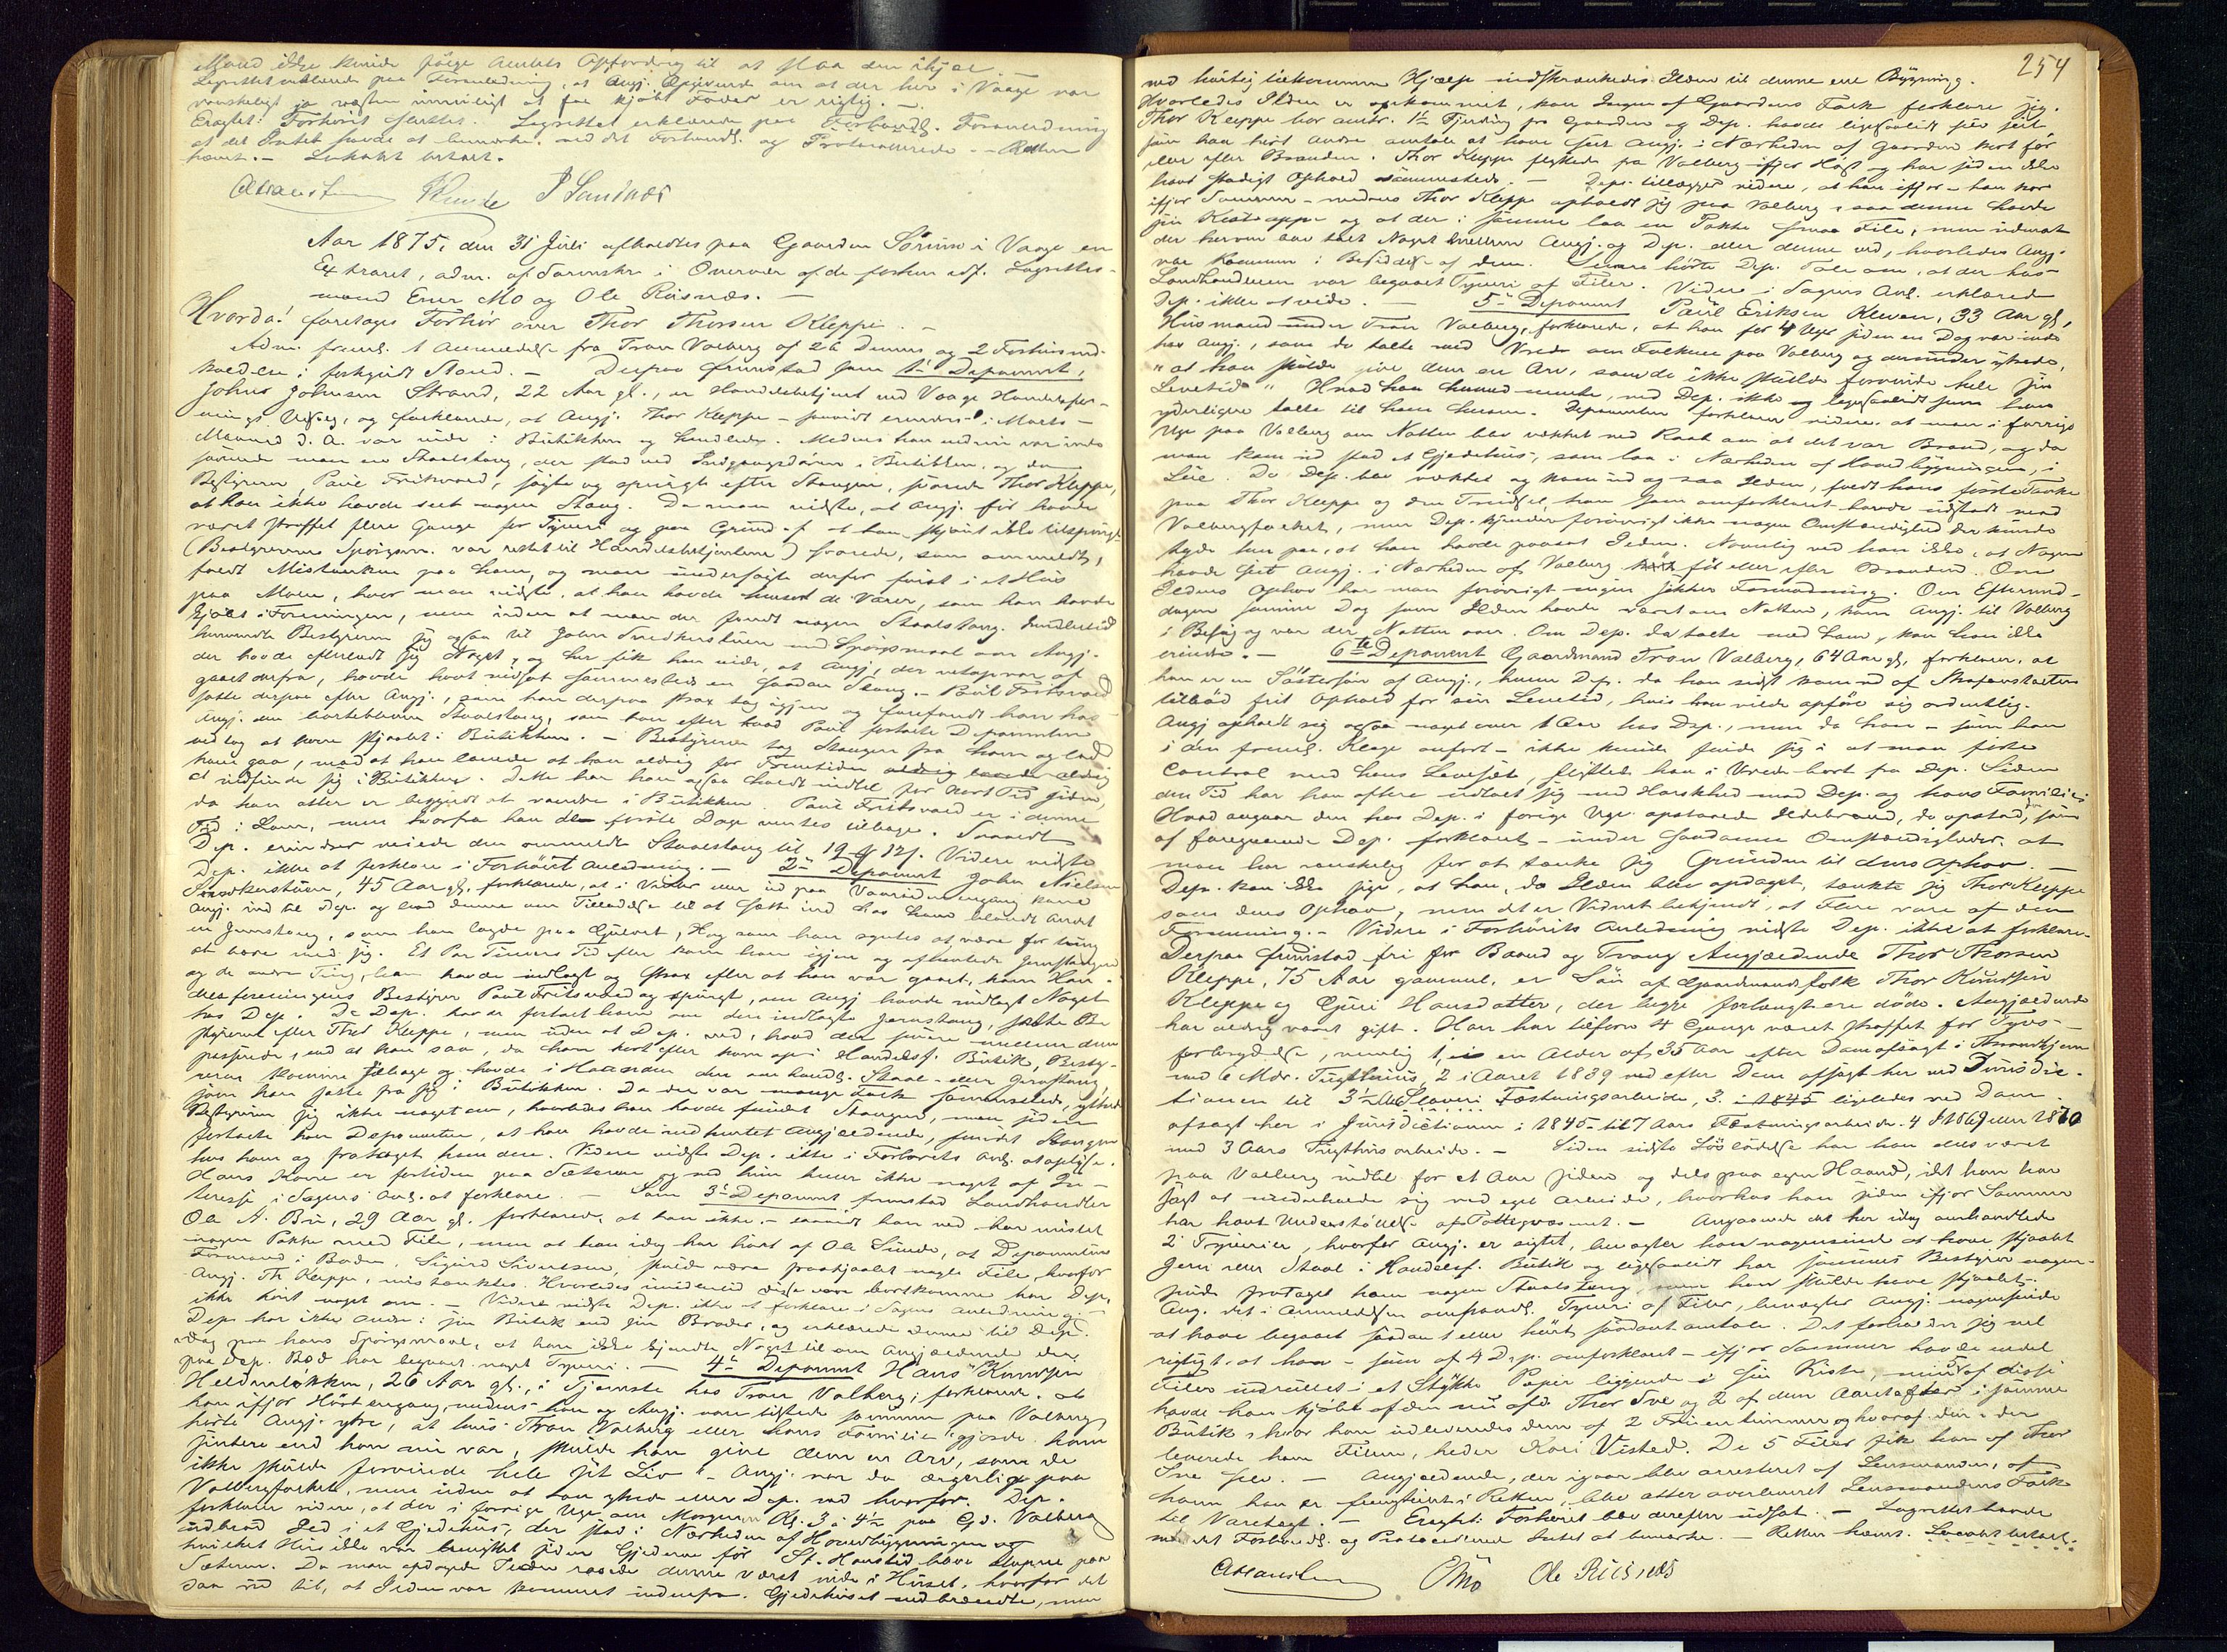 Mand ikke kunde følge Amtets Opfordring til at slaa den ihjel
Lagrettet erklærede paa Foranledning, at Angj. Opgivende om at der her i Vaage var
vanskeligt ja næsten umuligt at faa kjøbt Foder er rigtig. —
Eragtet: Forhøret sluttet. Lagrettet erklærede paa Forhandl. Foranledning
at det Intet havde at bemærke ved det Forhandl. og Protocollerede. — Retten
hævet. — Lokalet betalt.
P Sandnes
Aar 1875, den 31 Juli afholdtes paa Gaarden Sørum i Vaage en
Extraret, adm. af Sorenskr. i Overvær af de forhen edf. Lagrettes-
mænd Ener Mo og Ole Riisnæs. —
Hvorda! foretages Forhør over Thor Thorsen Kleppe. —
Adm. freml. 1 Anmeldelse fra Tron Valberg af 26 Dennes og 2 Forhørsind-
kaldelse i forkyndt Stand. — Derpaa fremstod som 1ste Deponent,
Johns Johnsen Strand, 22 Aar gl., er Handelsbetjent ved Vaage Handelsfor-
enings Udsalg, og forklarede, at Angj. Thor Kleppe — saavidt erindres i Marts —
Maaned d. A. var inde i Butikken og handlede. Medens han endnu var inde
savnede man en Staalstang, der stod ved Indgangsdøren i Butikken, og da
Bestyreren, Paul Fritsvold, søgte og spurgte efter Stangen, svarede Thor Kleppe,
at han ikke havde seet nogen Stang. Da man vidste, at Angj. før havde
været straffet flere Gange for Tyveri og paa Grund af at han skjønt ikke tilspurgt
(Bestyrerens Spørgsm. var rettet til Handelsbetjentene) svarede, som anmeldt,
faldt Mistanken paa ham, og man undersøgte derfor først i et Huus
paa Moen, hvor man vidste, at han havde hensat de Varer, som han havde
kjøbt i Foreningen, men uden at man der fandt nogen Staalstang. Imidlertid
henvendte Bestyreren sig ogsaa til John Snedkerstuen med Spørgsmaal om Angj.
der havde efterladt sig Noget, og her fik han vide, at Angj., der netop var af
gaaet derfra, havde havt nedsat sammesteds en saadan Stang. — Paul Fritsvold
satte derpaa efter Angj., som han derpaa strax tog igjen og forefandt han hos
Angj. den bortekomne Staalstang, som han efter hvad Paul fortalte Deponenten
vedtog at have stjaalet i Butikken. — Bestyreren tog Stangen fra ham og lod
ham gaa, mod at han lovede at han aldrig for Fremtiden aldrig
at indfinde sig i Butikken. Dette har han ogsaa holdt indtil for kort Tid siden,
da han atter er begyndt at vandre i Butikken. Paul Fritsvold er i denne
Tid i Lom, men hvorfra han de første Dage ventes tilbage. Saavidt
Dep. erindrer veiede den anmeldte Staalstang til 19 ₰ 12 ſ. Videre vidste
Dep. ikke at forklare i Forhørets Anledning. — 2den Deponent John Nielsen
Snedkerstuen, 45 Aar gl. forklarede, at i Vinter eller ud paa Vaaren engang kom
Angj. ind til Dep. og bad denne om Tilladelse til at sætte ind hos ham blandt andet
en Jernstang, som han lagde paa Gulvet, og som han syntes at være for tung
at bære med sig. Et Par Timers Tid efter kom han igjen og afhentede Jernstangen
og de andre Ting, han havde indlagt og strax efter at han var gaaet, kom Han-
delsforeningens Bestyrer Paul Fritsvold og spurgte, om Angj. havde indlagt Noget
hos Dep. Da Dep. havde fortalt ham om den indlagte Jernstang, satte Be
styreren efter Thor Kleppe, men uden at Dep. ved, hvad der senere mellem dem
passerede, end at han saa, da han kort efter kom op i Handelsf. Butik, Besty-
reren komme tilbage og havde i Haanden den omhandl. Staal- eller Jernstang,
som han satte fra sig i Butikken. Da der var mange Folk sammesteds, yttrede
Bestyreren sig ikke noget om, hvorledes han havde fundet Stangen, men siden
fortalte han Deponenten, at han havde indhentet Angjældende, fundet Stangen
hos ham og frataget ham den. Videre vidste Dep. ikke i Forhørets Anl. at oplyse.
Hans Kone er fortiden paa Sæteren og ved hun heller ikke noget af In-
teresse i Sagens Anl. at forklare. — Som 3die Deponent fremstod Landhandler
Ole A. Bu, 29 Aar gl. forklarede, at han ikke — saavidt han ved har mistet
nogen Pakke med File, men at han idag har hørt af Ole Sunde, at Deponentens
Formand i Boden, Sigurd Sivertsen, skulde være frastjaalet nogle File, hvorfor
Angj. Th. Kleppe, mistænktes. Hvorledes imidlertid disse vare bortkomne har Dep.
ikke hørt noget om. — Videre vidste Dep. ikke at forklare i Sagens Anledning. —
Dep. har ikke andre i sin Butik end sin Broder, og erklærede denne til Dep.
idag paa hans Spørgsmaal, at han ikke kjendte Noget til om Angjældende der
paa Dep. Bod har begaaet noget Tyveri. — 4de Deponent Hans Knudsen
Heldmoløkken, 26 Aar gl., i Tjeneste hos Tron Valberg, forklarede, at
han ifjor Høst engang, medens han og Angj. vare tilstede sammen paa Valberg
hørte Angj. ytre, at hvis Tron Valberg eller hans Familie "gjorde ham
sintere end han nu var, skulde han give dem en Arv, som de
ikke skulde forvinde hele sit Liv" — Angj. var da ærgerlig paa
Valbergfolket, men uden at han ytrede eller Dep. ved hvorfor. Dep.
forklarer videre, at der i forrige Uge om Morgenen Kl. 3 à 4½ paa Gd. Valberg
udbrød Ild i et Gjedehus, der stod i Nærheden af Hovedbygningen og
hvilket Hus ikke var benyttet siden Gjederne før St. Hanstid bleve slupne paa
Sæteren. Da man opdagede Ilden rasede denne værst inde i Huset, hvorfor det
saa ud til, at Ilden var kommet indenfra. Gjedehuset nedbrændte, men
254
ved hurtig tilkommen Hjælp indskrænkedes Ilden til denne ene Bygning.
Hvorledes Ilden er opkommet, kan Ingen af Gaardens Folk forklare sig.
Thor Kleppe bor omtr. 1½ Fjerding fra Gaarden og Dep. havde ligesaalidt selv seet
som han hørt andre omtale at have seet Angj. i Nærheden af Gaarden kort før
eller efter Branden. Thor Kleppe flyttede fra Valberg ifjor Høst og har siden ikke
havt stadigt Ophold sammesteds. — Dep. tillægger videre, at han ifjor
ifjor Sommer — medens Thor Kleppe opholdt sig paa Valberg, saa denne havde
sin Kiste oppe og at der i samme laa en Pakke smaa File, men uden at
der herom blev talt Noget mellem Angj. og Dep. eller denne ved, hvorledes Angj.
var kommen i Besiddelse af dem. Senere hørte Dep. Tale om, at der hos
Landhandleren var begaaet Tyveri af Filer. Videre i Sagens Anl. erklærede
Dep. ikke at vide. — 5te Deponent Paul Eriksen Kleven, 33 Aar gl.,
Husmand under Tron Valberg, forklarede, at han for 4 Uger siden en Dag var inde
hos Angj., som da talte med Vrede om Folkene paa Valberg og derunder ytrede,
"at han skulde give dem en Arv, som de ikke skulde forvinde hele sin
Levetid" Hvad han hermed mente, ved Dep. ikke og ligesaalidt som han
yderligere talte til ham herom. Deponenten forklarer videre, at man i forrige
Uge paa Valberg om Natten blev vækket ved Raab om at det var Brand, og da
man kom ud stod et Gjedehus, som laa i Nærheden af Hovedbygningen, i
Lue. Da Dep. blev vækket og kom ud og saa Ilden, faldt hans første Tanke
paa Thor Kleppe og den Trudsel, han som omforklaret havde udstødt mod
Valbergfolket, men Dep. kjender forøvrigt ikke nogen Omstændighed der kunde
tyde hen paa, at han havde paasat Ilden. Navnlig ved han ikke, at Nogen
havde seet Angj. i Nærheden af Valberg før eller efter Branden. Om
Ildens Ophav har man forøvrigt ingen sikker Formodning. Om Eftermid-
dagen samme Dag som Ilden havde været om Natten, kom Angj. til Valberg
i Besøg og var der Natten over. Om Dep. da talte med ham, kan han ikke
erindre. — 6te Deponent Gaardmand Tron Valberg, 64 Aar gl. forklarer, at
han er en Søstersøn af Angj., hvem Dep. da han sidst kom ud af Strafanstalten
tilbød frit Ophold for sin Levetid, hvis han vilde opføre sig ordentlig.
Angj. opholdt sig ogsaa noget over 1 Aar hos Dep., men da han — som han
i den freml. Klage anført — ikke kunde finde sig i at man førte
Control med hans Levesæt, flyttede han i Vrede bort fra Dep. Siden
den Tid har han oftere udladt sig med Harskhed mod Dep. og hans Familie.
Hvad angaar den hos Dep. i forige Uge opstaaede Ildebrand, da opstod den, som
af foregaaende Dep. forklaret — under saadanne Omstændigheder, at
man har vanskelig for at tænke sig Grunden til dens Ophav.
Dep. kan ikke sige, at han, da Ilden blev opdaget, tænkte sig Thor Kleppe
som dens Ophav, men det er Vidnet bekjendt, at Flere vare af den
Formening. — Videre i Forhørets Anledning vidste Dep. ikke at forklare.
Derpaa fremstod fri for Baand og Tvang Angjældende Thor Thorsen
Kleppe, 75 Aar gammel, er Søn af Gaardmandsfolk Thor Knudsen
Kleppe og Guri Hansdatter, der begge forlængst ere døde. Angjældende
har aldrig været gift. Han har tilforn 4 Gange været straffet for Tyvs-
forbrydelse, nemlig 1, i en Alder af 35 Aar efter Dom afsagt i Throndhjem
med 6 Mdr. Tugthus, 2 i Aaret 1839 ved efter Dom afsagt her ved Jurisdic-
tionen til 3½ Aars Slaveri Fæstningsarbeide, 3. i 1845 ligeledes ved Dom
afsagt her i Jurisdictionen i 1845 til 7 Aars Fæstningsarbeide. 4 i 1869 eller 1870
med 3 Aars Tugthusarbeide. — Siden sidste Løsladelse har han dels været
paa Valberg indtil for et Aar siden og dels paa egen Haand, idet han har
søgt at underholde sig ved eget Arbeide, hvorhos han siden ifjor Sommer
har havt Understøttelse af Fattigvæsenet. — Angaaende det her idag omhandlede
2 Tyverier, hvorfor Angj. er sigtet, benægter han nogensinde at have stjaalet
Jern eller Staal i Handelsf. Butik og ligesaalidt har sammes Bestyrer nogen-
sinde frataget ham nogen Staalstang, som han skulde have stjaalet.
Ang. det i Anmeldelsen omhandl. Tyveri af Filer, benægter Angj. nogensinde
at have begaaet saadant eller hørt saadant omtale. Det forholder sig vel
rigtigt, at han — som af 4 Dep. omforklaret — ifjor Sommer havde endel
Filer indrullet i et Stykke Papir liggende i sin Kiste, men af disse
havde han kjøbt af den nu afd. Thor Sve og 2 af dem Aaret efter i samme
Butik, hvor han udleveredes dem af 2 Fruentimmer og hvoraf den ene der
leverede ham Filene, heder Kari Visted. De 5 Filer fik han af Thor
Sve selv. — Angjældende, der igaar blev arresteret af Lensmanden, af
hvem han er fremstillet i Retten, blev atter overleveret Lensmandens Folk
til Varetægt. — Eragtet: Forhøret blev derefter udsat. — Lagrettet havde
ved det Forhandl. og Protocollerede Intet at bemærke. — Retten hævet. Localet betalt.
EMo Ole Riisnæs